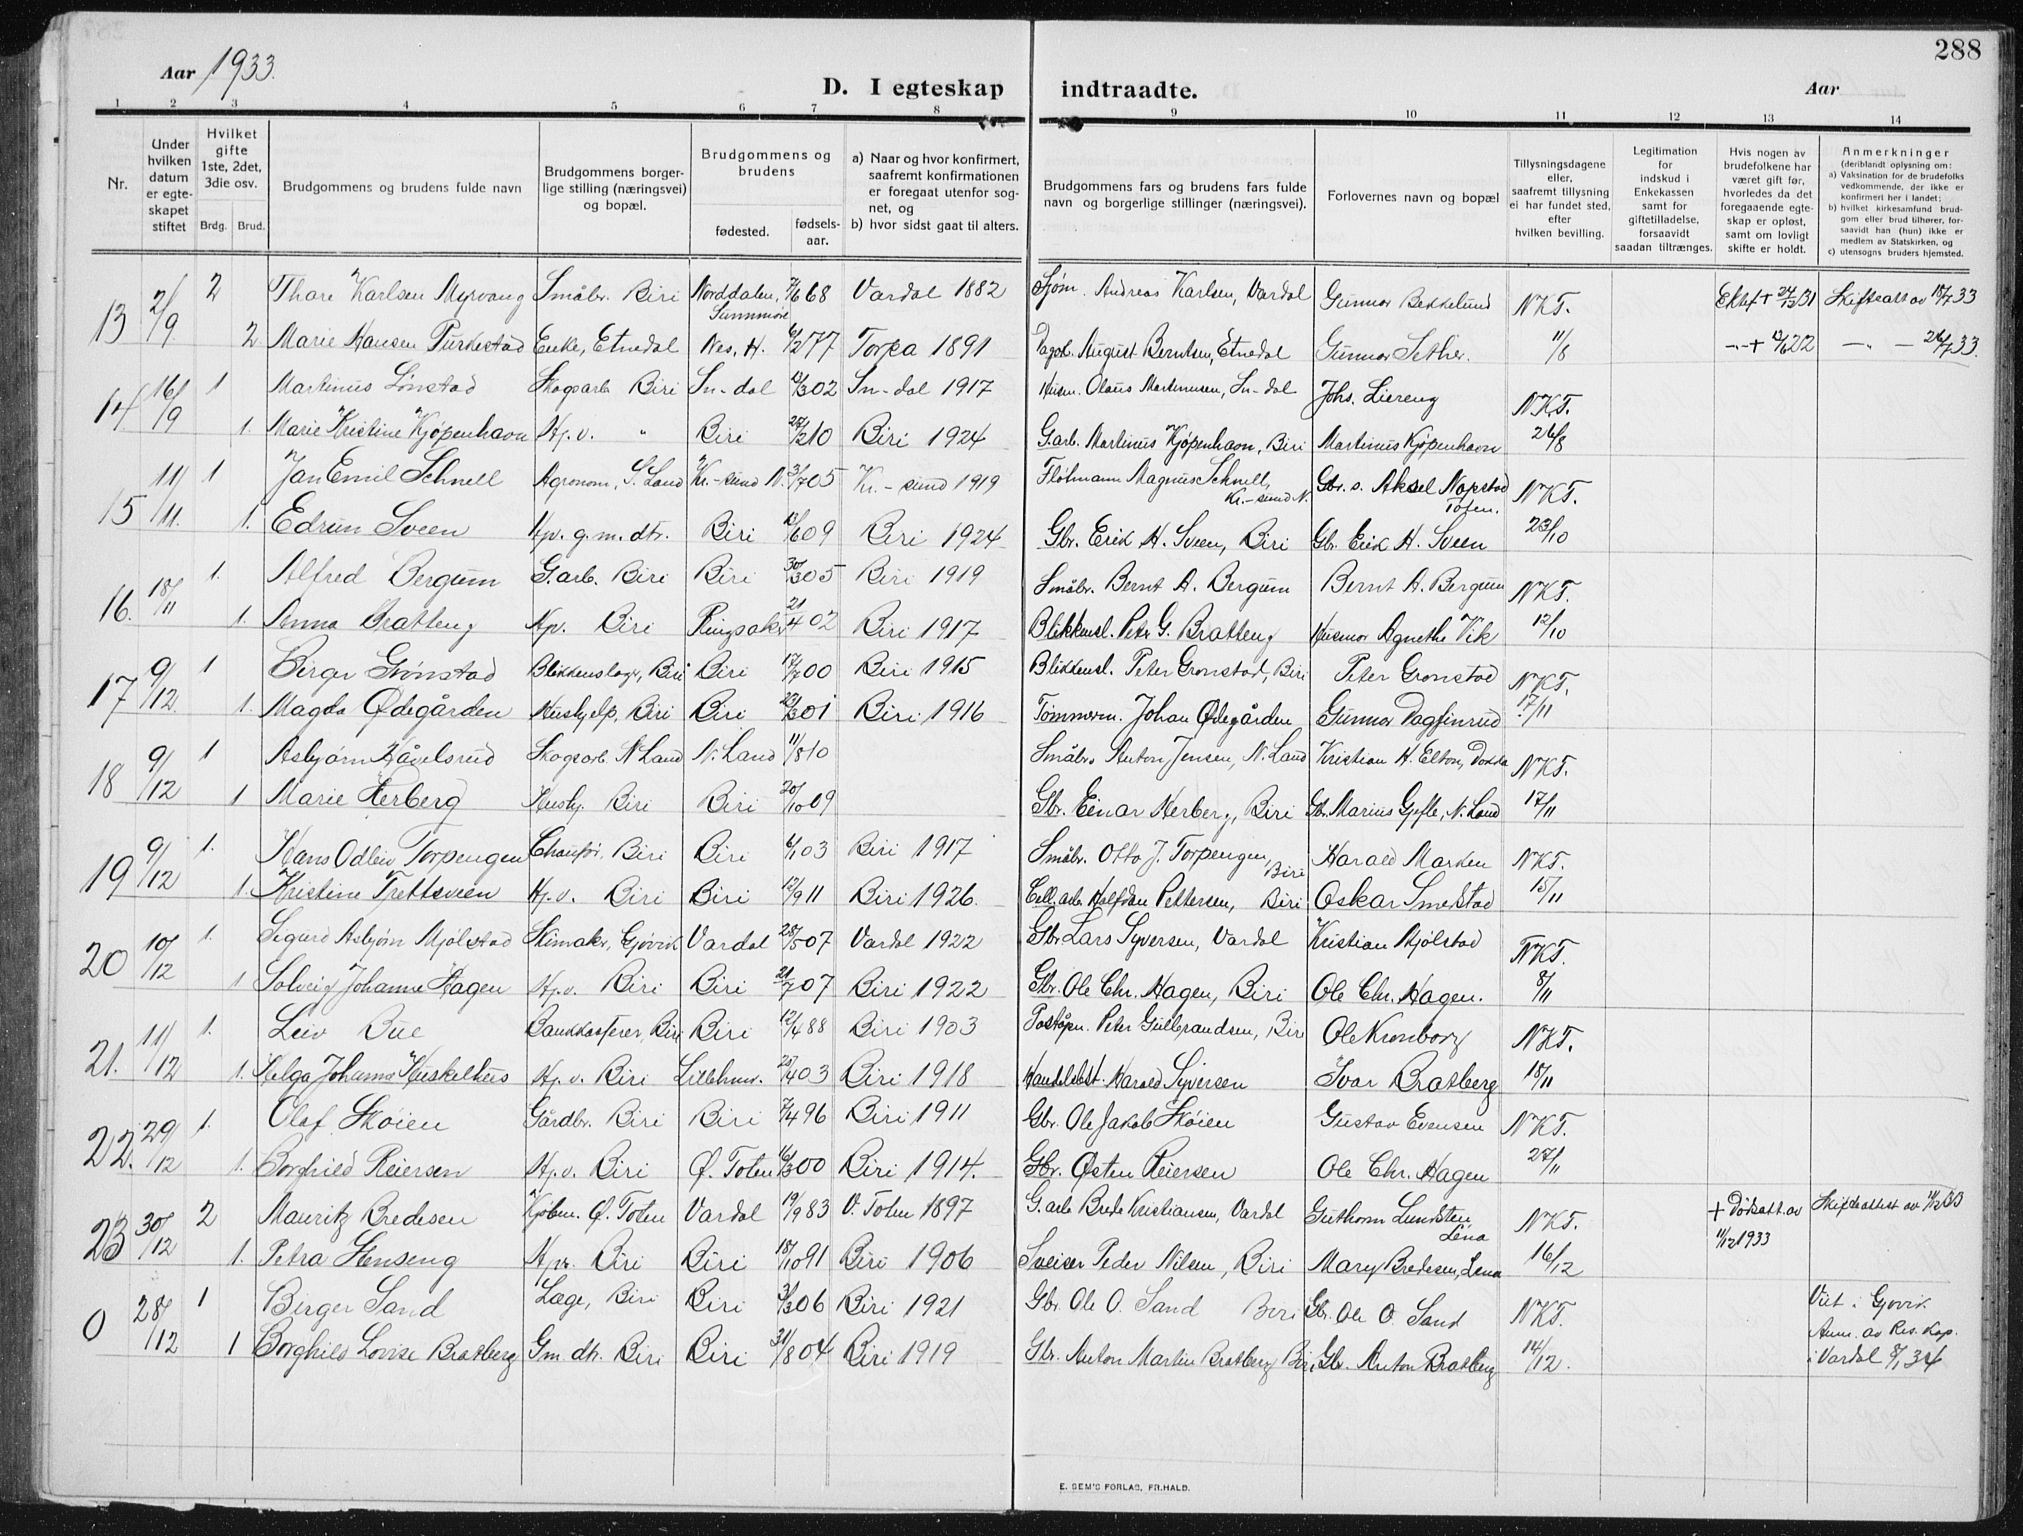 288
Aar 1933.
D. I egteskap indtraadte.
Aar
1 2 3 4 5 6 7 8 9 10 11 12 13 14
Nr.
Under hvilken datum er egteskapet stiftet
Hvilket gifte 1ste, 2det, 3die osv.
Brdg. Brud.
Brudgommens og brudens fulde navn
Brudgommens borgerlige stilling (næringsvei) og bopæl.
Brudgommens og brudens
fødested. fødselsaar.
a) Naar og hvor konfirmert, saafremt konfirmationen er foregaat utenfor sognet, og
b) hvor sidst gaat til alters.
Brudgommens fars og brudens fars fulde navn og borgerlige stillinger (næringsvei).
Forlovernes navn og bopæl
Tillysningsdagene eller, saafremt tillysning ei har fundet sted, efter hvilken bevilling.
Legitimation for indskud i Enkekassen samt for giftetilladelse, forsaavidt saadan tiltrænges.
Hvis nogen av brudefolkene har været gift før, hvorledes da det foregaaende egteskap er opløst, samt om lovligt skifte er holdt.
Anmerkninger (deriblandt oplysning om:
a) Vaksination for de brudefolks vedkommende, der ikke er konfirmert her i landet;
b) hvilket kirkesamfund brudgom eller brud tilhører, forsaavidt han (hun) ikke er medlem av Statskirken, og
c) utensogns bruders hjemsted.
13 2/9 2 Thore Karlsen Myrvang Småbr. Biri Norddalen, Sunnmøre 7/6 68 Vardal 1882 Sjøm. Andreas Karlsen, Vardal Gunnar Bekkelund N.K.T. Ektef + 24/12 31 Skifteatt av 18/7 33
2 Marie Hansen Turkestad Enke, Etnedal Nes, H. 6/2 77 Torpa 1891 August Berntsen, Etnedal Gunnar Sether. 11/8 -"- + 12/6 22 -"- 26/7 33.
14 16/9 1 Martinus Lønstad Skogsarb. Biri Sn-dal 13/3 02 Sn-dal 1917 Husm. Olaus Martinusen, Sn-dal Johs. Liereng N.K.T.
1. Marie Kristine Kjøpenhavn Hp.v. " Biri 24/2 10 Biri 1924 G.arb. Martinus Kjøpenhavn, Biri Martinus Kjøpenhavn 26/8
15 11/11. 1 Jan Emil Schnell Agronom, S. Land Kr.-sund N. 3/7 05 Kr.-sund 1919 Fløtmann Magnus Schnell, Kr.-sund N. Gbr. s. Aksel Nopstad Toten. N.K.T.
1. Edrun Sveen Hp. g.m.dtr. Biri 13/6 09 Biri 1924 Gbr. Erik H. Sveen, Biri Gbr. Erik H. Sveen 23/10
16. 18/11 1. Alfred Bergum G.arb. Biri Biri 30/3 05 Biri 1919 Småbr. Bernt A. Bergum Bernt A. Bergum N.K.T.
1. Anna Bratteng Hp. Biri Ringsaker 21/4 02 Biri 1917 Blikkensl. Petr G. Bratteng Husmor Agnethe Vik 12/10
17 9/12. 1 Birger Grønstad Blikkenslagr, Biri Biri 17/7 00 Biri 1915 Blikkensl. Peter Grønstad, Biri Peter Grønstad N.K.T.
1. Magda Ødegården Hushjelp, Biri Biri 23/3 01 Biri 1916 Tømmerm. Johan Ødegården Gunnar Dagfinrud 17/11
18 9/12 1 Asbjørn Håvelsrud Skogsarb. N. Land N. Land 11/8 10 Småbr. Anton Jensen, N. Land Kristian H. Elton, Dokka N.K.T.
1 Marie Herberg Hushj. Biri Biri 20/10 09 Gbr. Einar Herberg, Biri Gb. Marius Gjefle, N. Land 17/11
19 9/12 1. Hans Odleiv Torpengen Chaufør. Biri Biri 6/1 03 Biri 1917 Småbr. Otto J. Torpengen, Biri Harald Marken N.K.T.
1. Kristine Trettsveen Hp.v. Biri Biri 12/9 11 Biri 1926. Cell.arb. Halfdan Pettersen, Biri Oskar Smedstad 15/11
20 10/12 1. Sigurd Asbjørn Mjølstad Skimakr, Gjøvik Vardal 28/5 07 Vardal 1922 Gbr Lars Syversen, Vardal Kristian Mjølstad N.K.T.
1 Solveig Johanne Hagen Hp.v. Biri Biri 21/7 07 Biri 1922 Gbr. Ole Chr. Hagen, Biri Ole Chr. Hagen. 8/11
21. 11/12 1. Leiv Bue Bankkasserer, Biri Biri 12/4 88 Biri 1903 Poståpn. Peter Gulbrandsen, Biri Ole Kronborg N.K.T.
1. Helga Johanna Huskelhus Hp.v. Biri Lillehmr. 25/4 03 Biri 1918 Handelsbst. Harald Syversen Ivar Bratberg 18/11
22. 29/12 1. Olaf Skøien Gårdbr. Biri Biri 7/4 96 Biri 1911 Gbr. Ole Jakob Skøien Gustav Evensen N.K.T.
1. Borghild Reiersen Hp.v. Biri Ø. Toten 16/3 00 Biri 1914. Gbr. Østen Reiersen Ole Chr. Hagen 27/11
23 30/12 2 Mauritz Bredesen Kjøbm. Ø. Toten Vardal 19/9 83 V. Toten 1897 G.arb Brede Kristiansen, Vardal Guthorm Lundsten Lena N.K.T. + Dødsatt. av 11/12 1933 Skifteattest av 11/12 33
1. Petra Stenseng Hp. Biri Biri 18/10 91 Biri 1906 Sveiser Peder Nilsen, Biri Mary Bredesen, Lena 16/12
0 28/12 1 Birger Sand Læge, Biri Biri 3/3 06 Biri 1921 Gbr. Ole O. Sand Biri Gbr. Ole O. Sand N.K.T. Viet i Gjøvik.
1 Borghild Lovise Bratberg Gm. dtr. Biri Biri 31/8 04 Biri 1919 Gbr. Anton Martin Bratberg Biri, Gbr. Anton Bratberg 14/12. Anm. av Res. Kap. i Vardal 8/1 34
E. SEM'S FORLAG, FR.HALD.